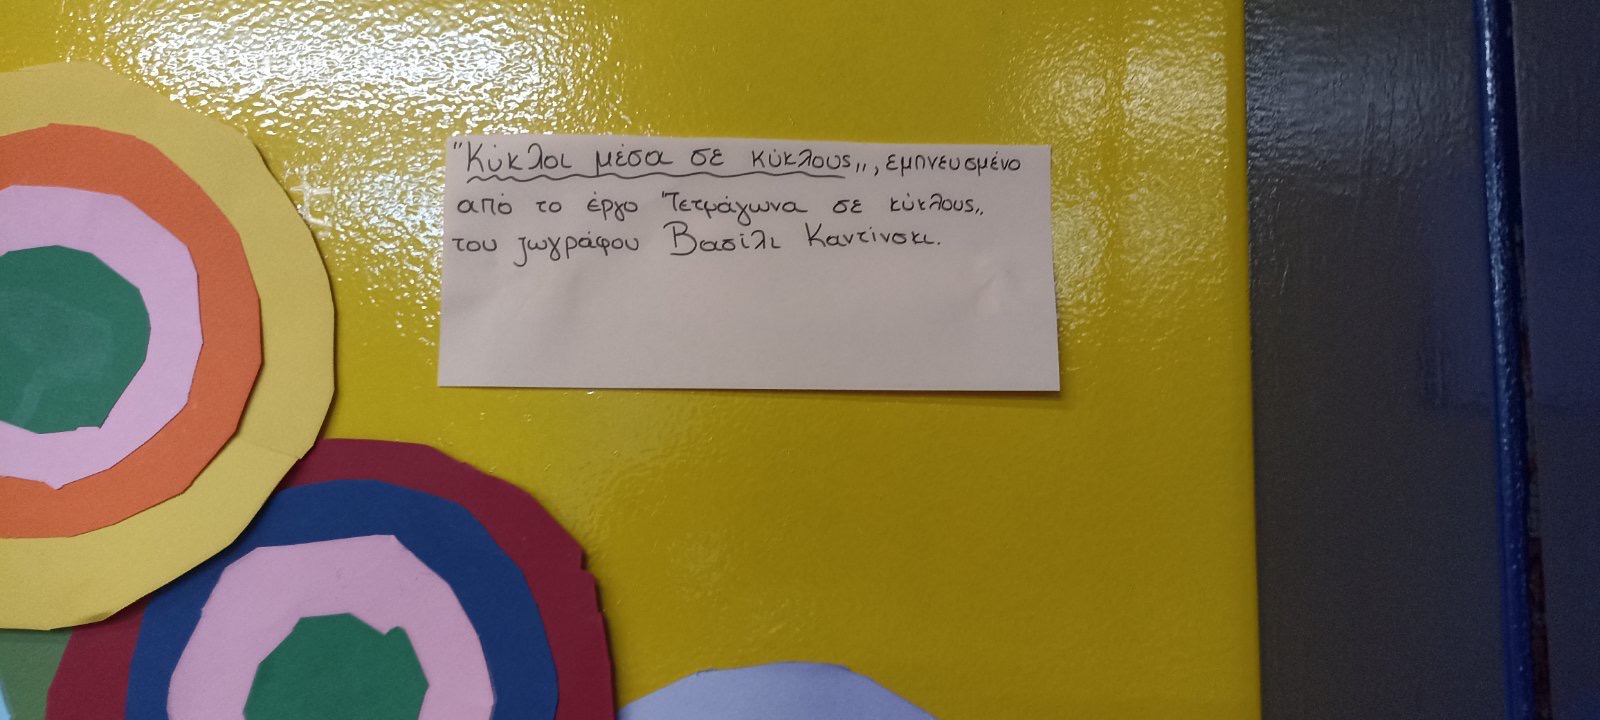 "Κύκλοι μέσα σε κύκλους,,, εμπνευσμένο
από το έργο "Τετράγωνα σε κύκλους,,
του ζωγράφου Βασίλι Καντίνσκι.